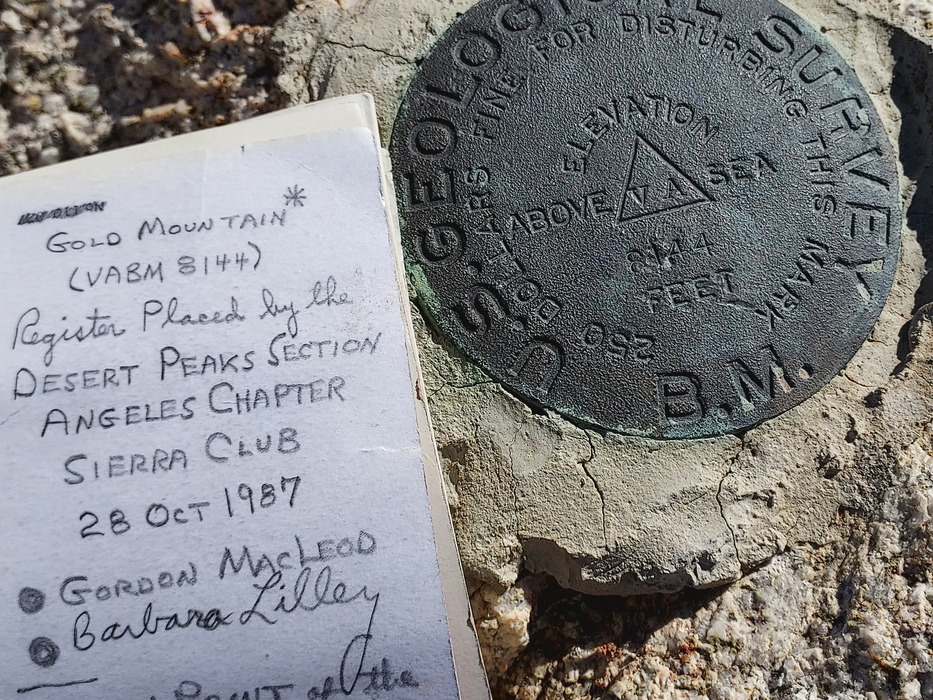 GOLD MOUNTAIN*
(VABM 8144)
Register Placed by the
DESERT PEAKS SECTION
ANGELES CHAPTER
SIERRA CLUB
28 OCT 1987
GORDON MACLEOD
Barbara Lilley
of the
U.S. GEOLOGICAL SURVEY
B.M.
250 DOLLARS FINE FOR DISTURBING THIS MARK
ELEVATION
ABOVE V A SEA
8144
FEET